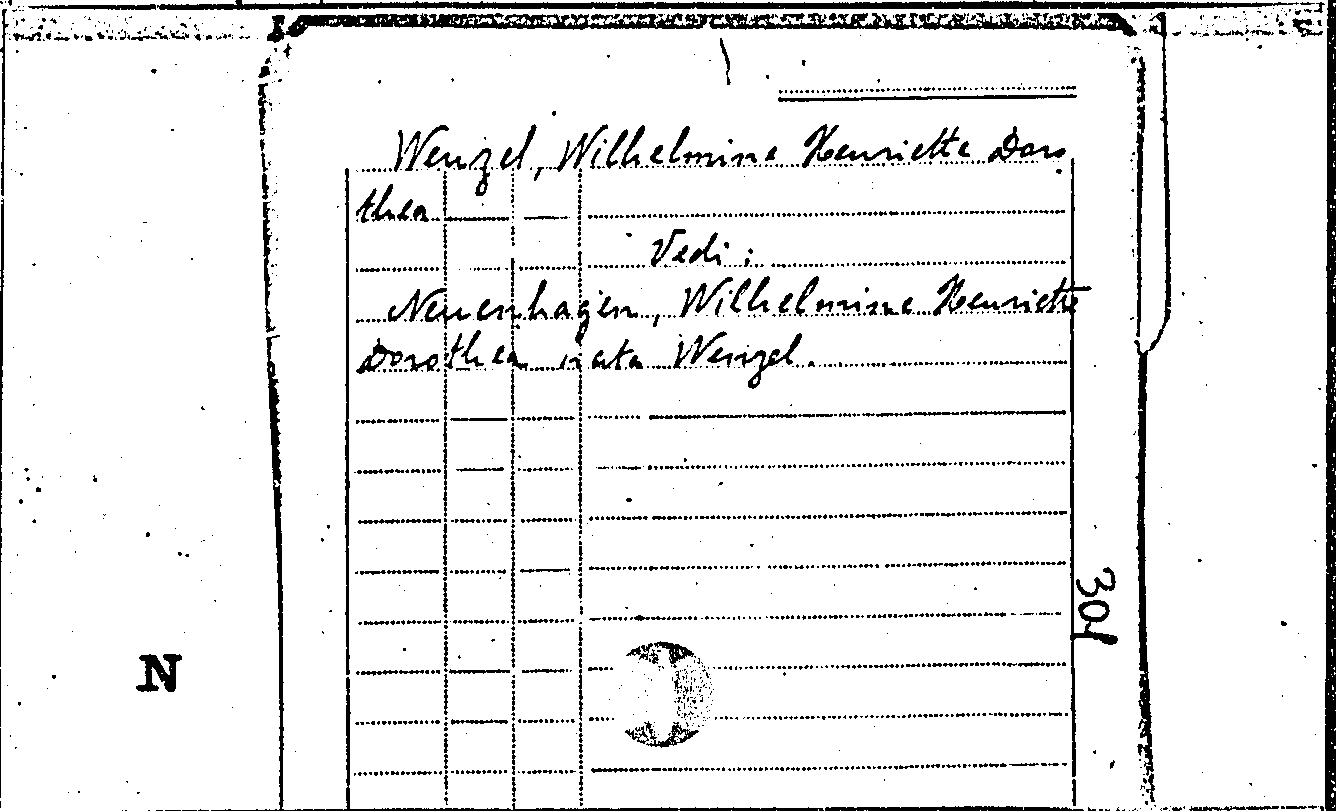 Wenzel, Wilhelmine Henriette Doro
thea
Vedi:
Neuenhagen, Wilhelmine Henriette
Dorothea nata Wenzel.
304
N